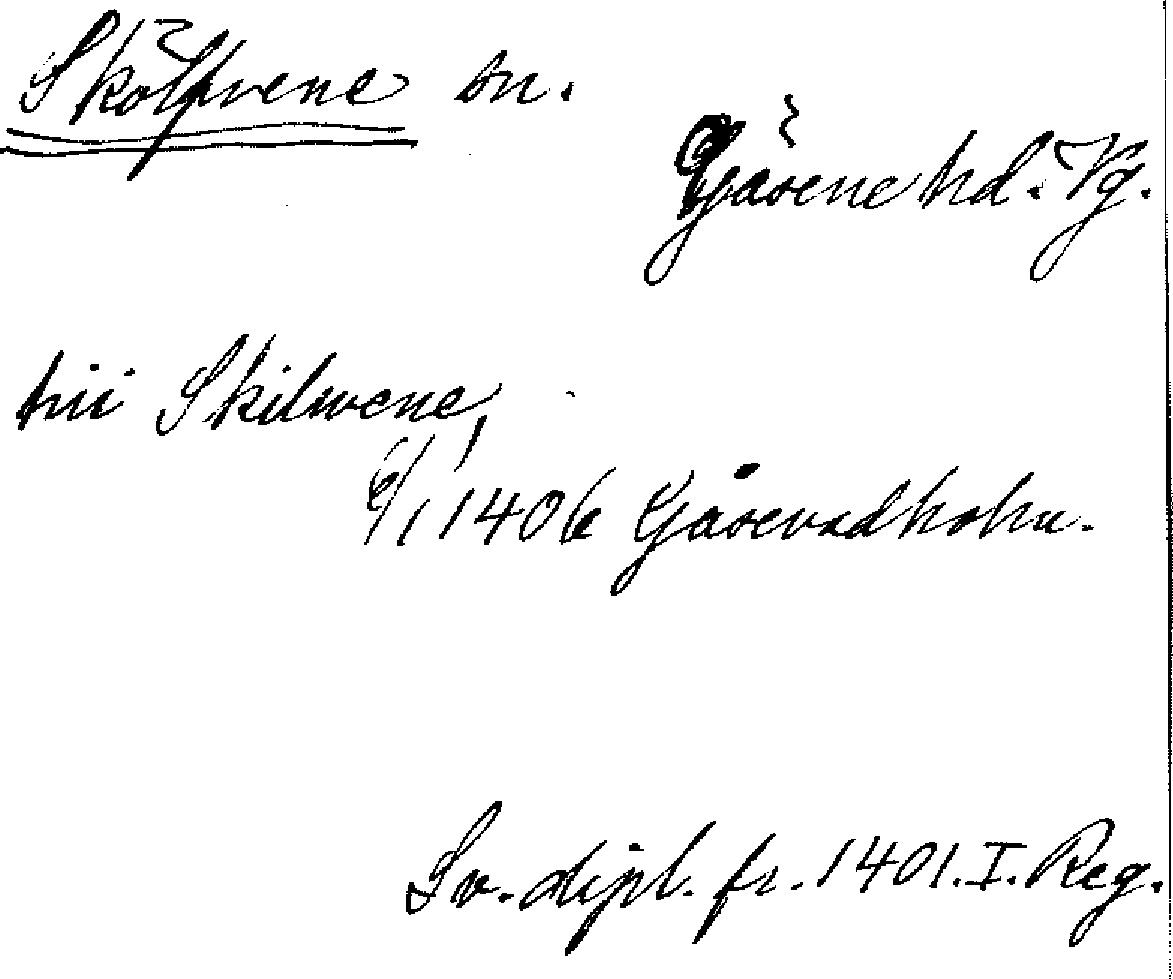 Skölvene sn.
Gäsene hd. Vg.
hii Skilwene,
6/1 1406 Gåsevadholm.
Sv. dipl. fr. 1401. I. Reg.